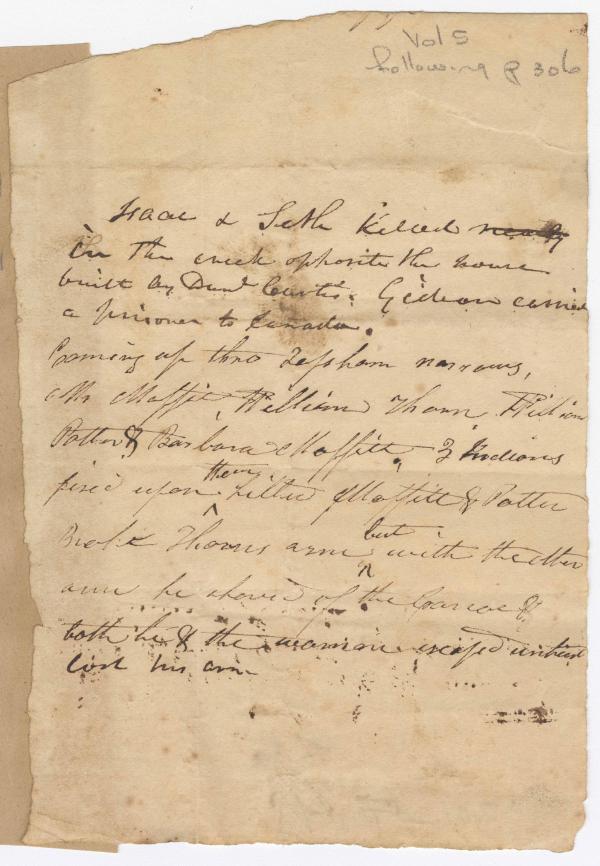 Vol 5
following p 306
Isaac & Seth Killed nearly
in the creek opposite the house
built by Danl Curtis. Gideon carried
a prisoner to Canada.
Coming up thro Topsham narrows,
Mr Moffitt, William Thorn,
Potter & Barbara Moffitt, 3 Indians
fired upon them killed Moffitt & Potter
Broke Thorns arm but with the other
arm he shoved of the Canoe &
both he & the woman escaped
lost his arm